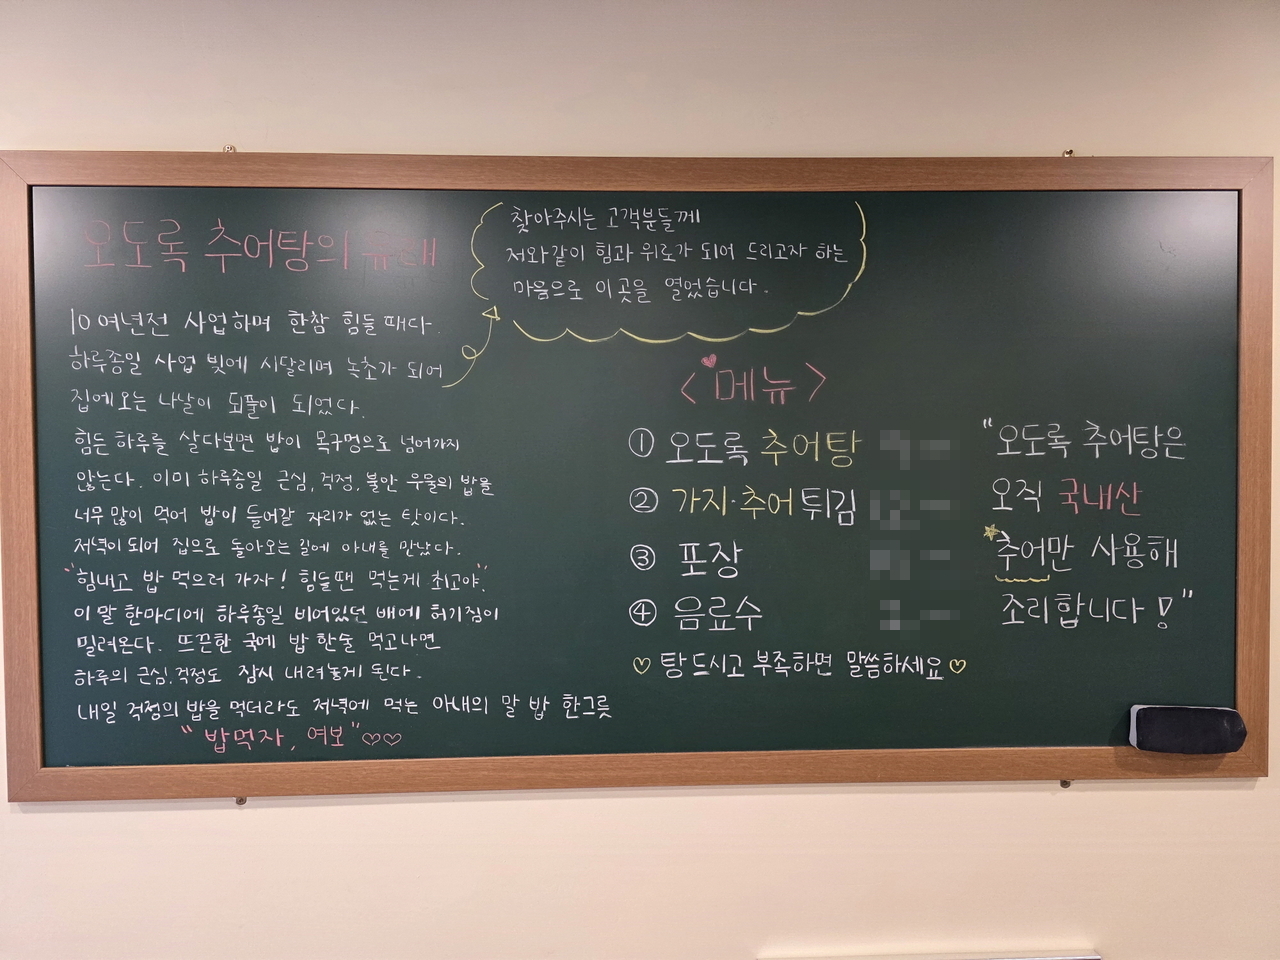 오도록 추어탕의 유래
10여년전 사업하며 한참 힘들 때다.
하루종일 사업 빚에 시달리며 녹초가 되어
집에오는 나날이 되풀이 되었다.
힘든 하루를 살다보면 밥이 목구멍으로 넘어가지
않는다. 이미 하루종일 근심, 걱정, 불안 우울의 밥을
너무 많이 먹어 밥이 들어갈 자리가 없는 탓이다.
저녁이 되어 집으로 돌아오는 길에 아내를 만났다.
"힘내고 밥 먹으러 가자! 힘들땐 먹는게 최고야."
이 말 한마디에 하루종일 비어있던 배에 허기짐이
밀려온다. 뜨끈한 국에 밥 한술 먹고나면
하루의 근심, 걱정도 잠시 내려놓게 된다.
내일 걱정의 밥을 먹더라도 저녁에 먹는 아내의 말 밥 한그릇
"밥먹자, 여보" ♡♡
찾아주시는 고객분들께
저와같이 힘과 위로가 되어 드리고자 하는
마음으로 이곳을 열었습니다.
<메뉴>
① 오도록 추어탕
② 가지·추어튀김
③ 포장
④ 음료수
♡ 탕드시고 부족하면 말씀하세요 ♡
"오도록 추어탕은
오직 국내산
추어만 사용해
조리합니다!"